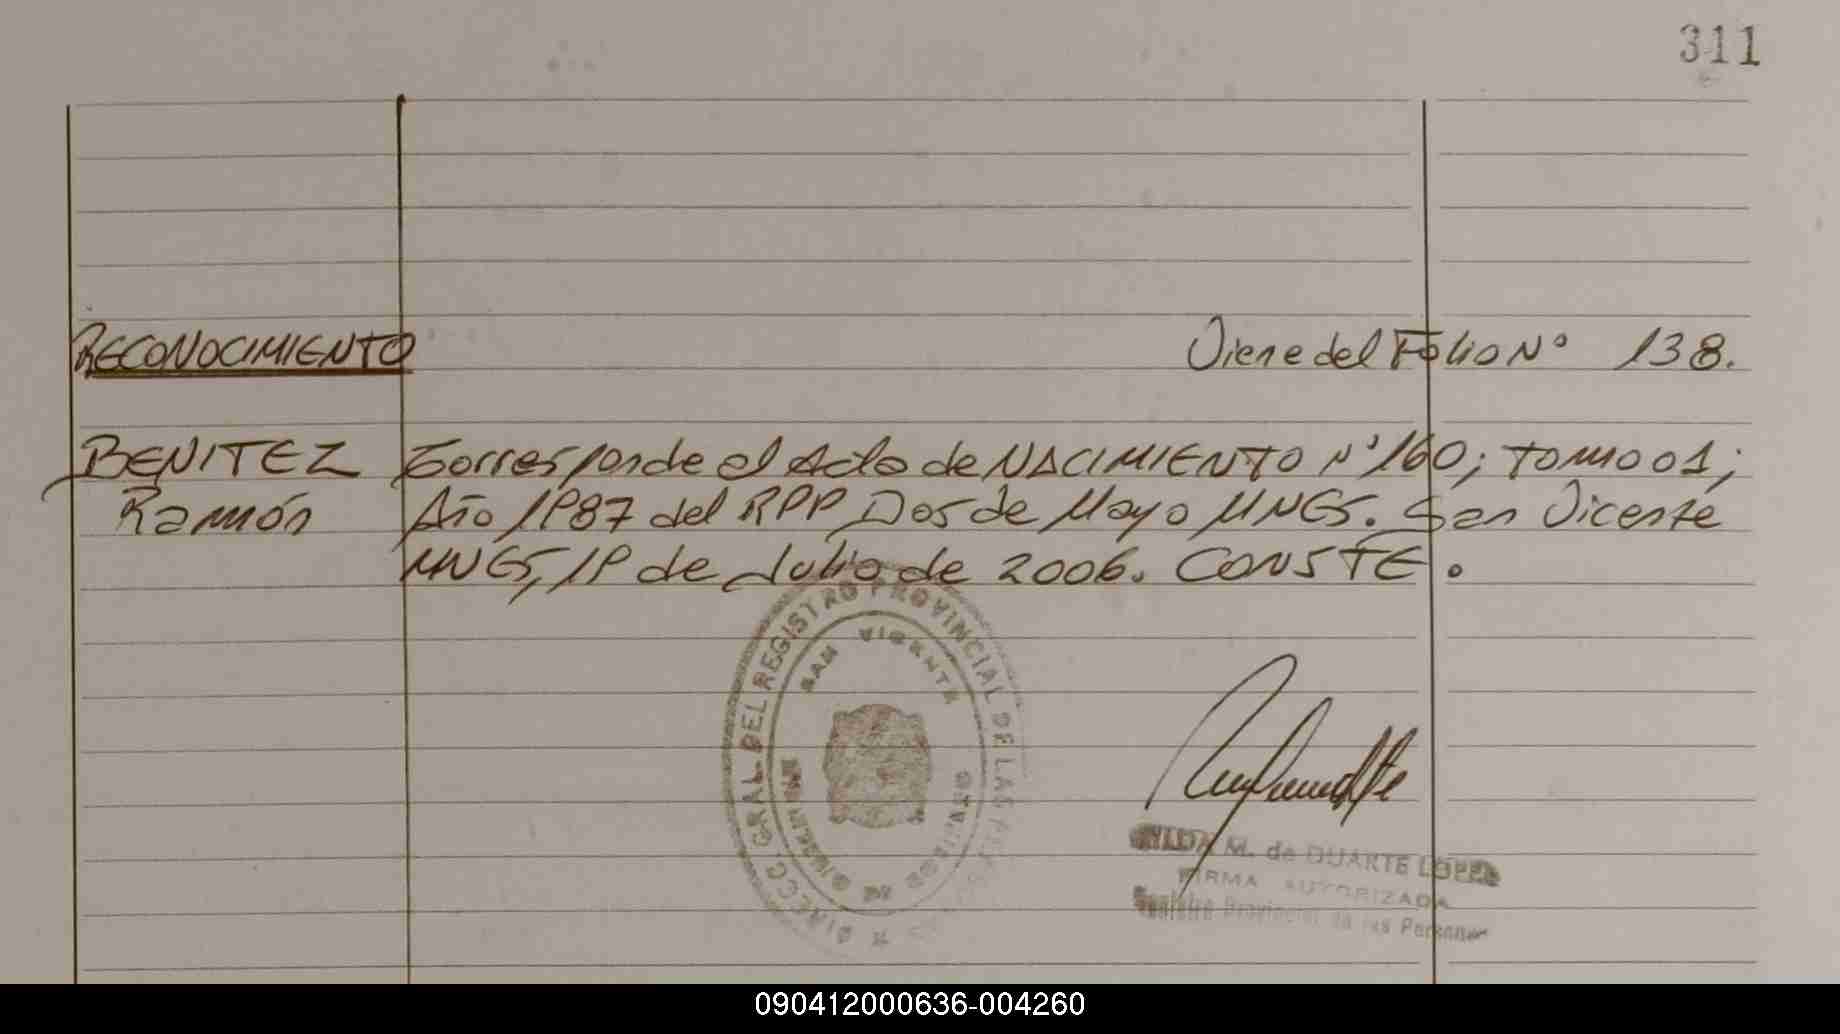 311
RECONOCIMIENTO Viene del Folio Nº 138.
BENITEZ Corresponde al Acta de NACIMIENTO Nº 160; TOMO 01;
Ramón Año 1987 del RPP Dos de Mayo MNES. San Vicente
MNES, 19 de Julio de 2006. CONSTE.
DIRECC. GRAL. DEL REGISTRO PROVINCIAL DE LAS
SAN VICENTE
M. de DUARTE LOPEZ
FIRMA AUTORIZADA
Registro Provincial de las Personas
090412000636-004260